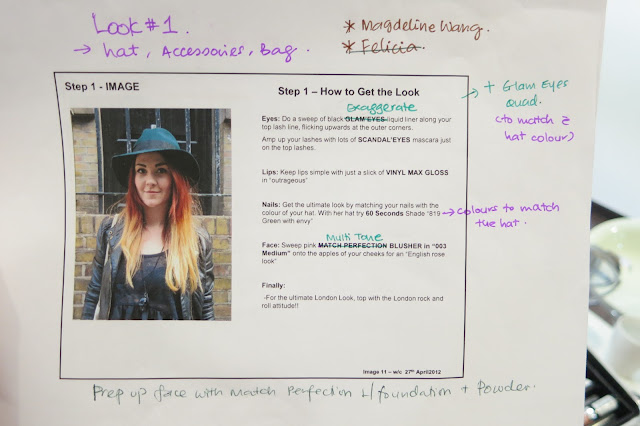 Look #1.
→ hat, Accessories, Bag.
* Magdeline Wang.
* Felicia.
Step 1 - IMAGE
Step 1 – How to Get the Look
Exaggerate
Eyes: Do a sweep of black GLAM'EYES liquid liner along your
top lash line, flicking upwards at the outer corners.
Amp up your lashes with lots of SCANDAL'EYES mascara just
on the top lashes.
Lips: Keep lips simple with just a slick of VINYL MAX GLOSS
in "outrageous"
Nails: Get the ultimate look by matching your nails with the
colour of your hat. With her hat try 60 Seconds Shade "819
Green with envy"
Multi Tone
Face: Sweep pink MATCH PERFECTION BLUSHER in "003
Medium" onto the apples of your cheeks for an "English rose
look"
Finally:
-For the ultimate London Look, top with the London rock and
roll attitude!!
Image 11 – w/c 27th April2012
→ + Glam Eyes
Quad.
(to match
hat colour)
→ colours to match
the hat.
Prep up face with Match Perfection foundation + Powder.